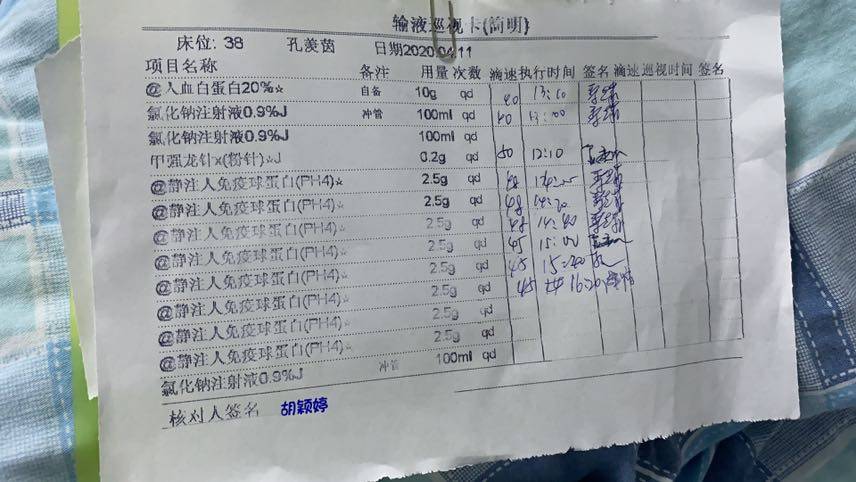 输液巡视卡(简明}
床位: 38 孔羡茵 日期2020.04.11
项目名称 备注 用量 次数 滴速 执行时间 签名 滴速 巡视时间 签名
@人血白蛋白20%☆ 自备 10g qd 40 13:10
氯化钠注射液0.9%J 冲管 100ml qd 40
氯化钠注射液0.9%J 100ml qd
甲强龙针x(粉针)☆J 0.2g qd 50 12:10
@静注人免疫球蛋白(PH4)☆ 2.5g qd
@静注人免疫球蛋白(PH4)☆ 2.5g qd 48 14:20
@静注人免疫球蛋白(PH4)☆ 2.5g qd 48 14:40
@静注人免疫球蛋白(PH4)☆ 2.5g qd 45 15:00
@静注人免疫球蛋白(PH4)☆ 2.5g qd 45 15:20
@静注人免疫球蛋白(PH4)☆ 2.5g qd 45 16:20
@静注人免疫球蛋白(PH4)☆ 2.5g qd
@静注人免疫球蛋白(PH4)☆ 2.5g qd
氯化钠注射液0.9%J 冲管 100ml qd
核对人签名 胡颖婷